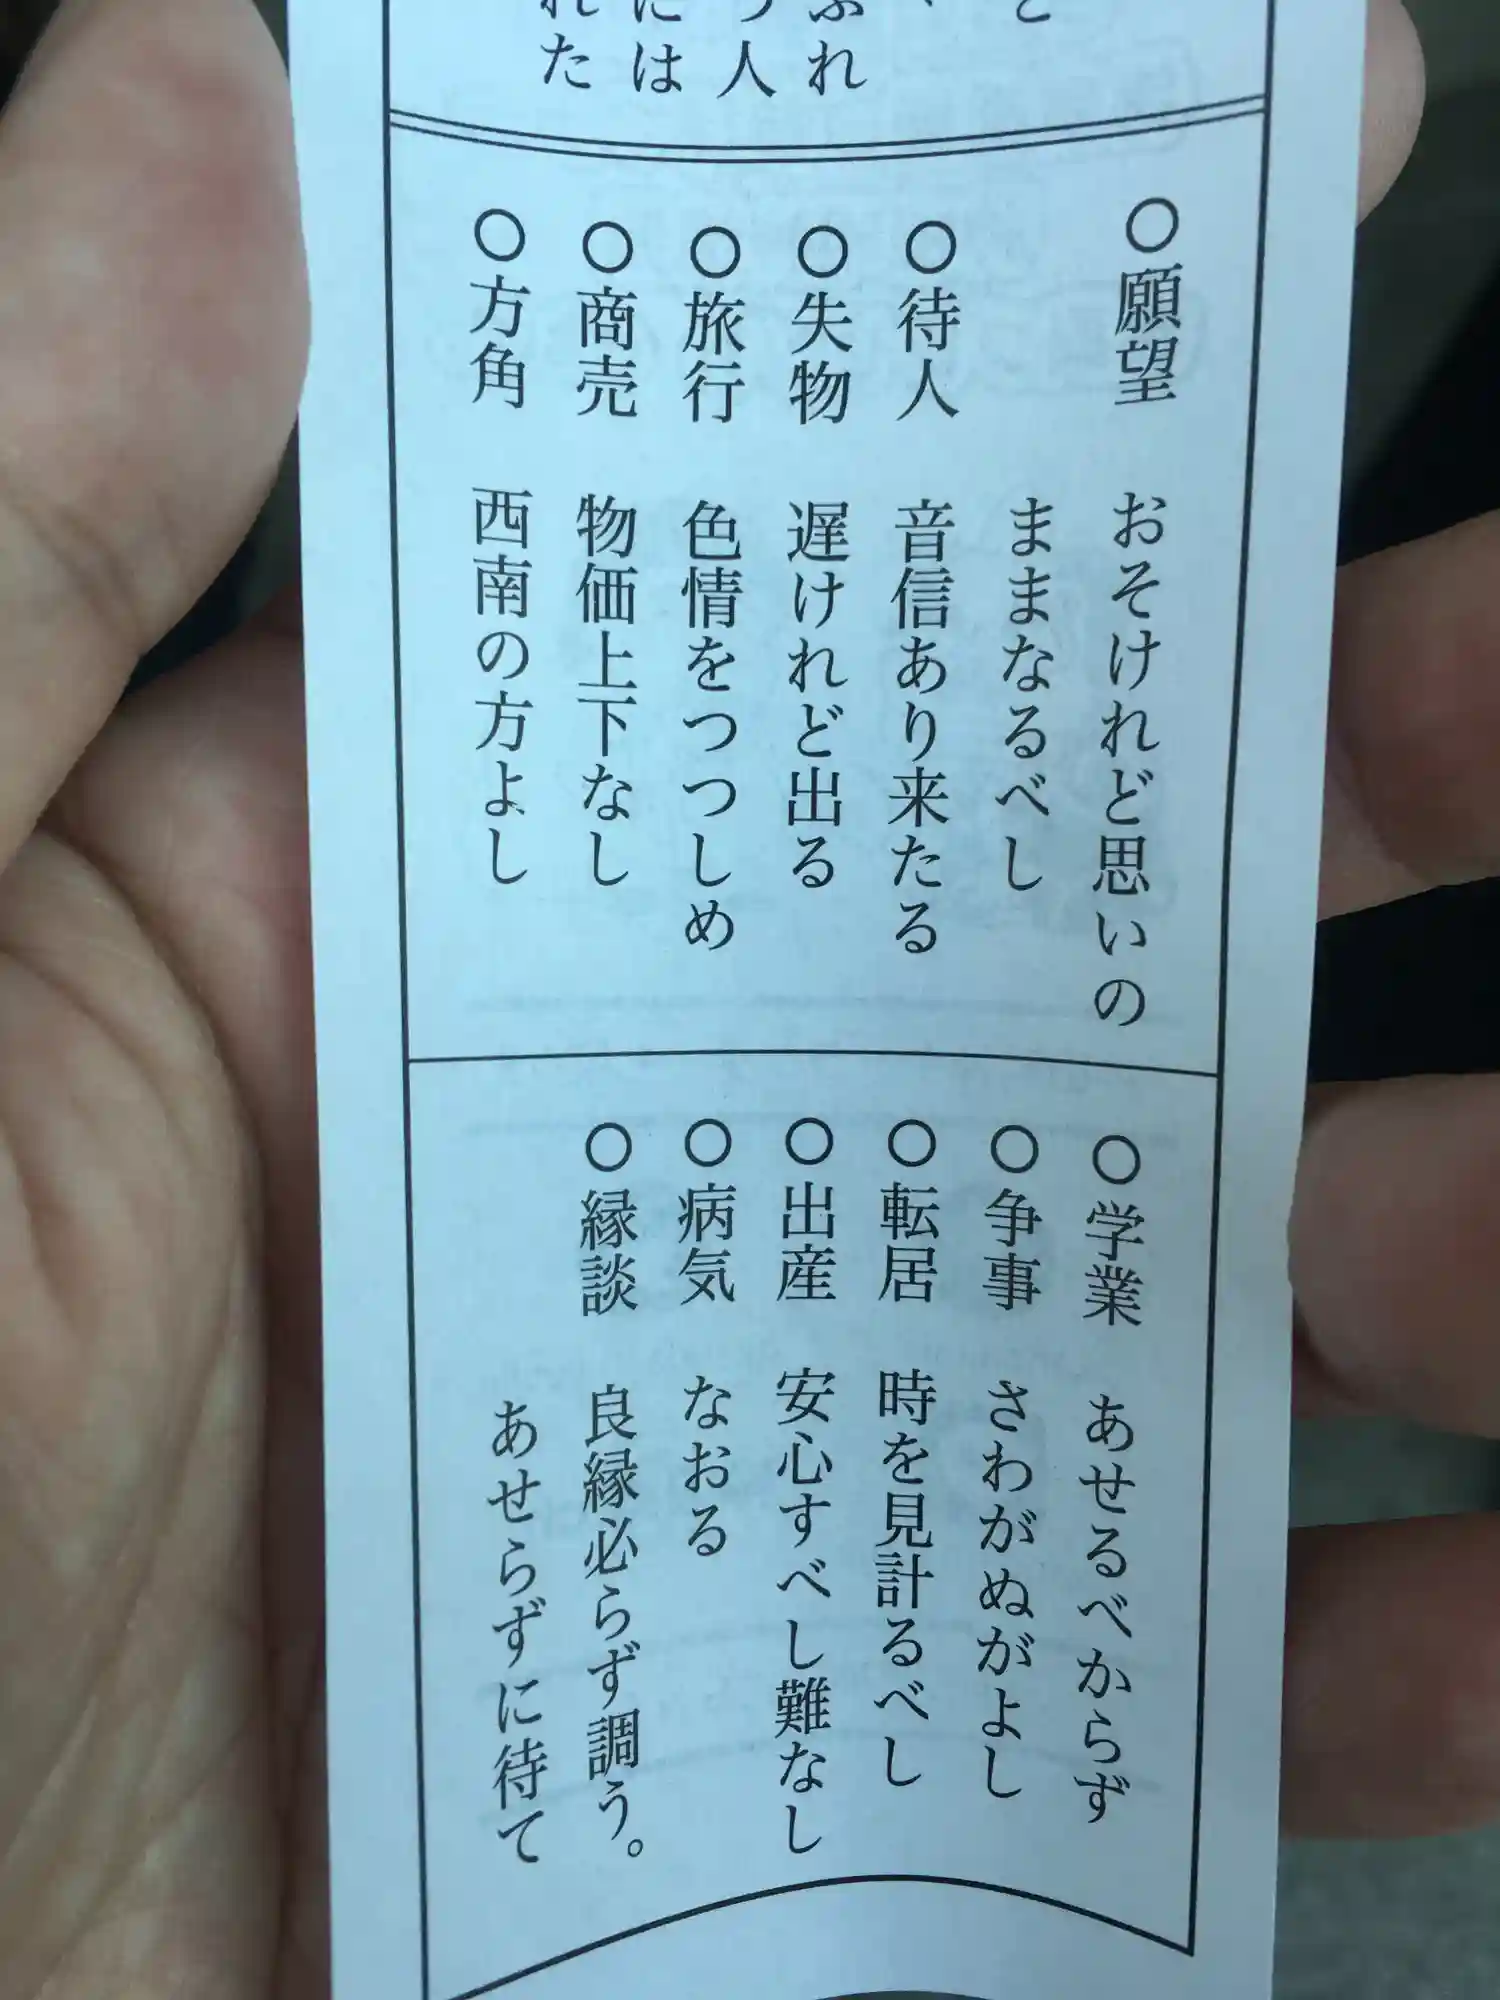 ふれ
う人
には
れた
○願望 おそけれど思いの
ままなるべし
○待人 音信あり来たる
○失物 遅けれど出る
○旅行 色情をつつしめ
○商売 物価上下なし
○方角 西南の方よし
○学業 あせるべからず
○争事 さわがぬがよし
○転居 時を見計るべし
○出産 安心すべし難なし
○病気 なおる
○縁談 良縁必らず調う。
あせらずに待て